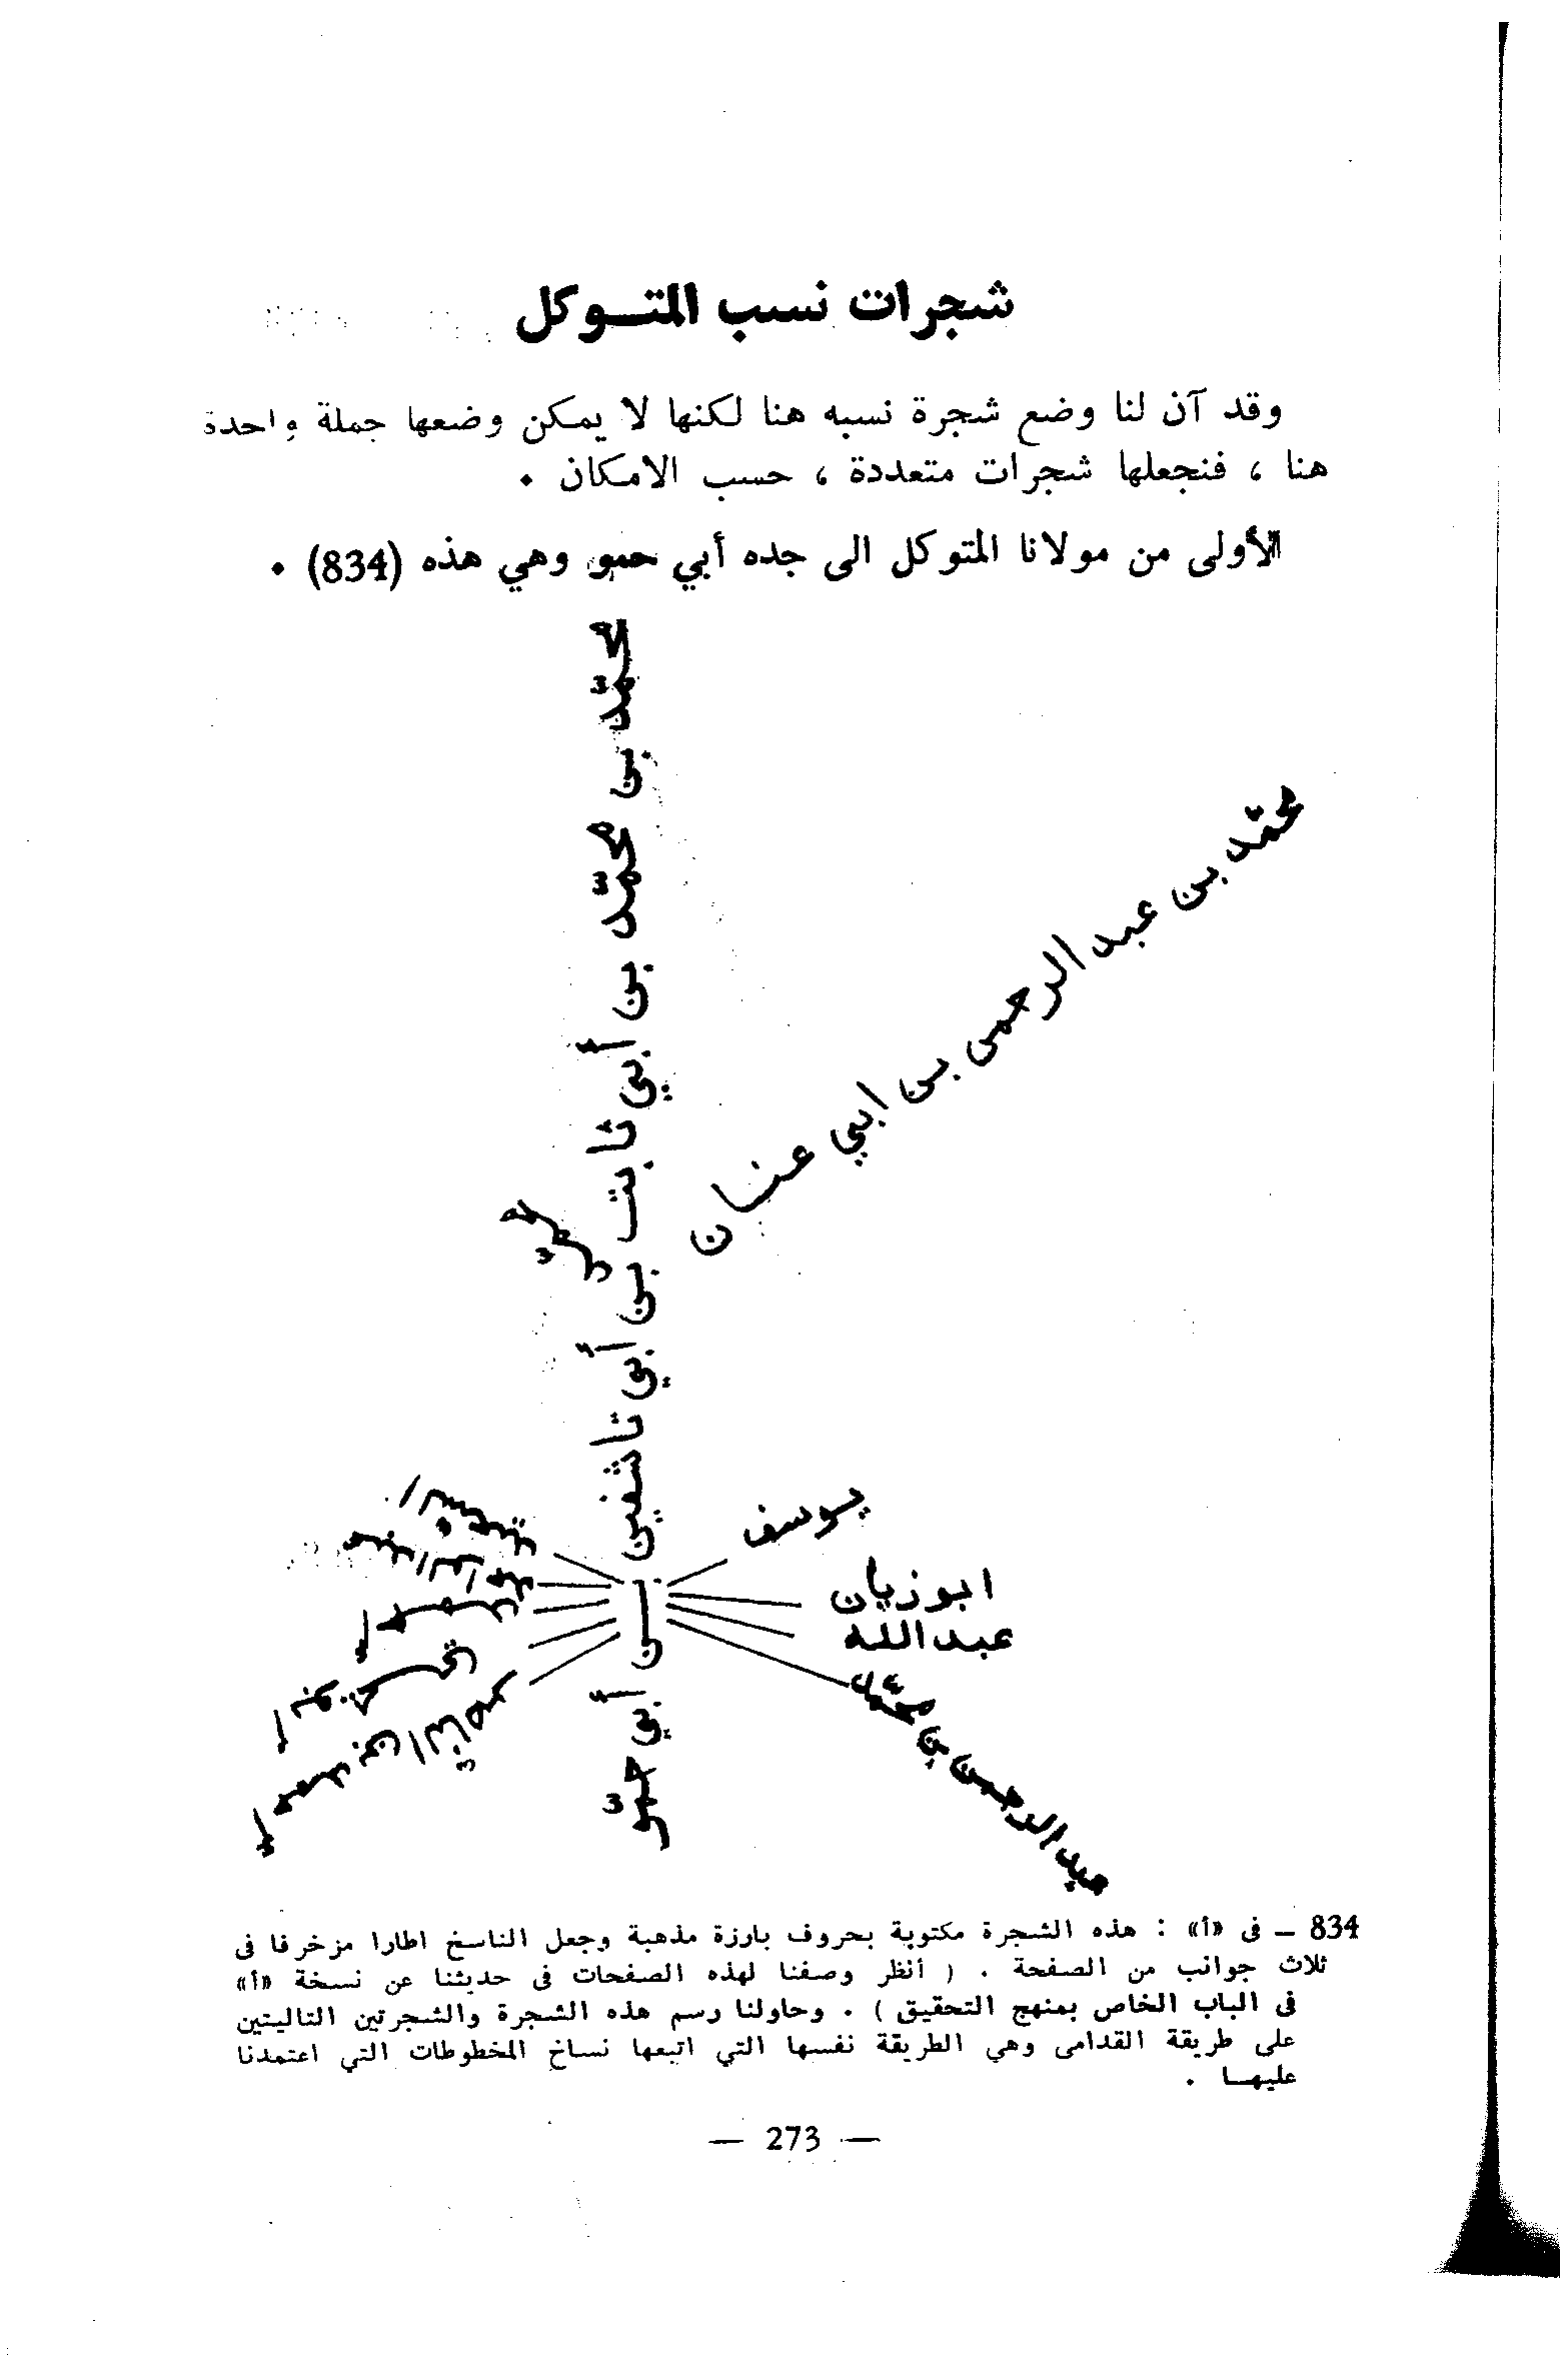 شجرات نسب المتـــوكل
وقد آن لنا وضع شجرة نسبه هنا لكنها لا يمكن وضعها جملة واحدة
هنا ، فنجعلها شجرات متعددة ، حسب الامكان .
الأولى من مولانا المتوكل الى جده أبي حمو وهي هذه (834) .
محمّد بن محمّد بن أبي ثابت بن أبي تاشفين بـــن أبي حمّو
محمّد بن عبد الرحمن بن ابي عنـــان
يوسف
ابو زيان
عبد الله
عبد الرحمن بن محمّد
834 ــ فى «أ» : هذه الشجرة مكتوبة بحروف بارزة مذهبة وجعل الناسخ اطارا مزخرفا فى
ثلاث جوانب من الصفحة . ( أنظر وصفنا لهذه الصفحات فى حديثنا عن نسخة «أ»
فى الباب الخاص بمنهج التحقيق ) . وحاولنا رسم هذه الشجرة والشجرتين التاليتين
على طريقة القدامى وهي الطريقة نفسها التي اتبعها نساخ المخطوطات التي اعتمدنا
عليهــا .
— 273 —